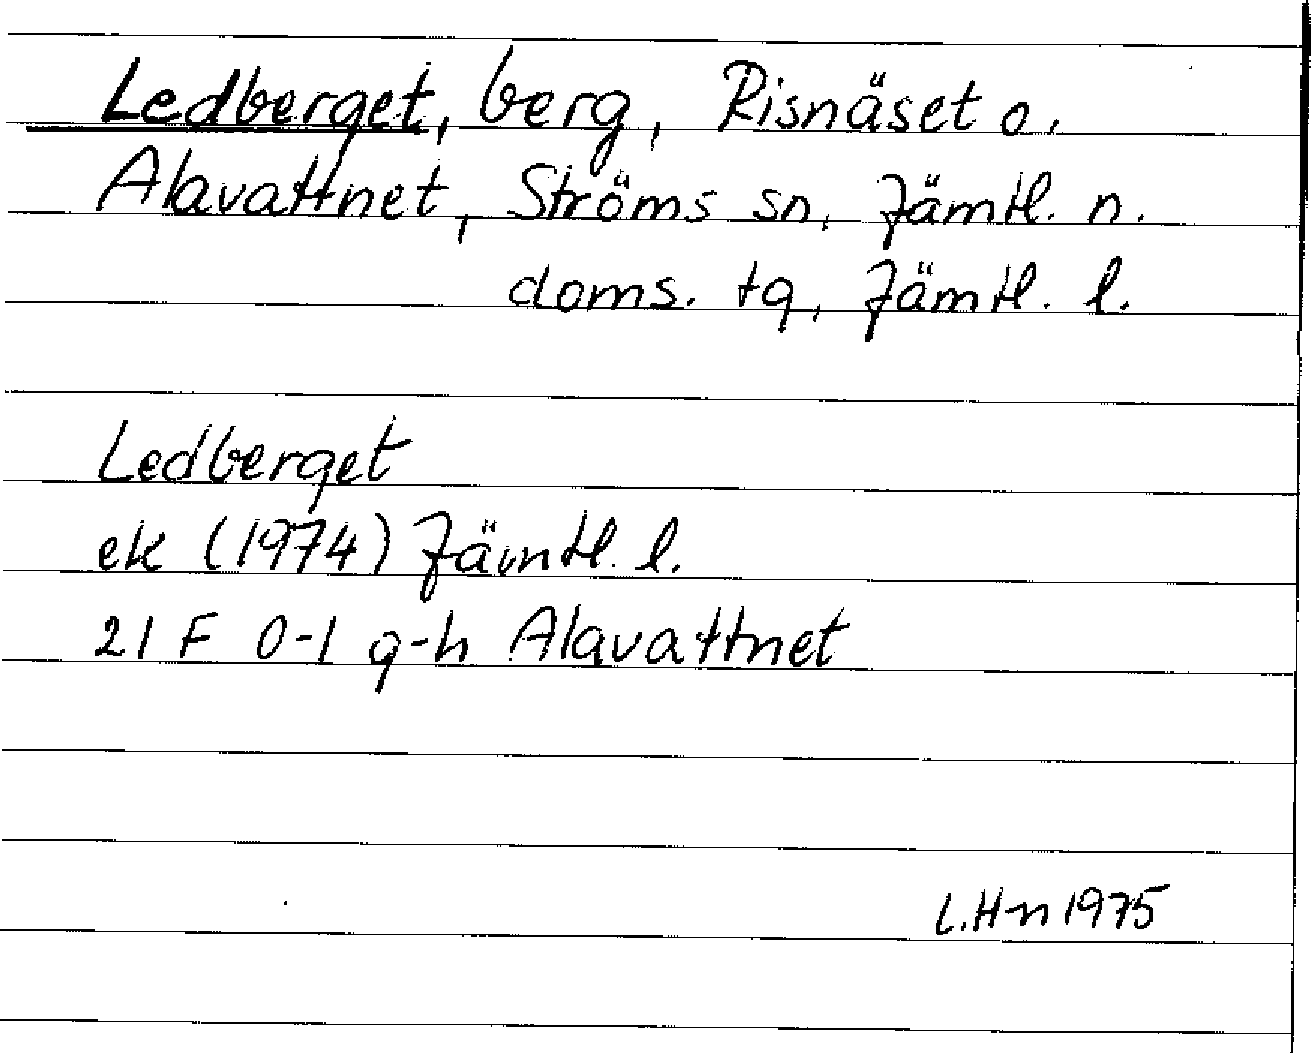 Ledberget, berg, Risnäset o.
Alavattnet, Ströms sn, Jämtl. n.
doms. tg, Jämtl. l.
Ledberget
ek (1974) Jämtl. l.
21 F 0-1 g-h Alavattnet
L.Hn 1975